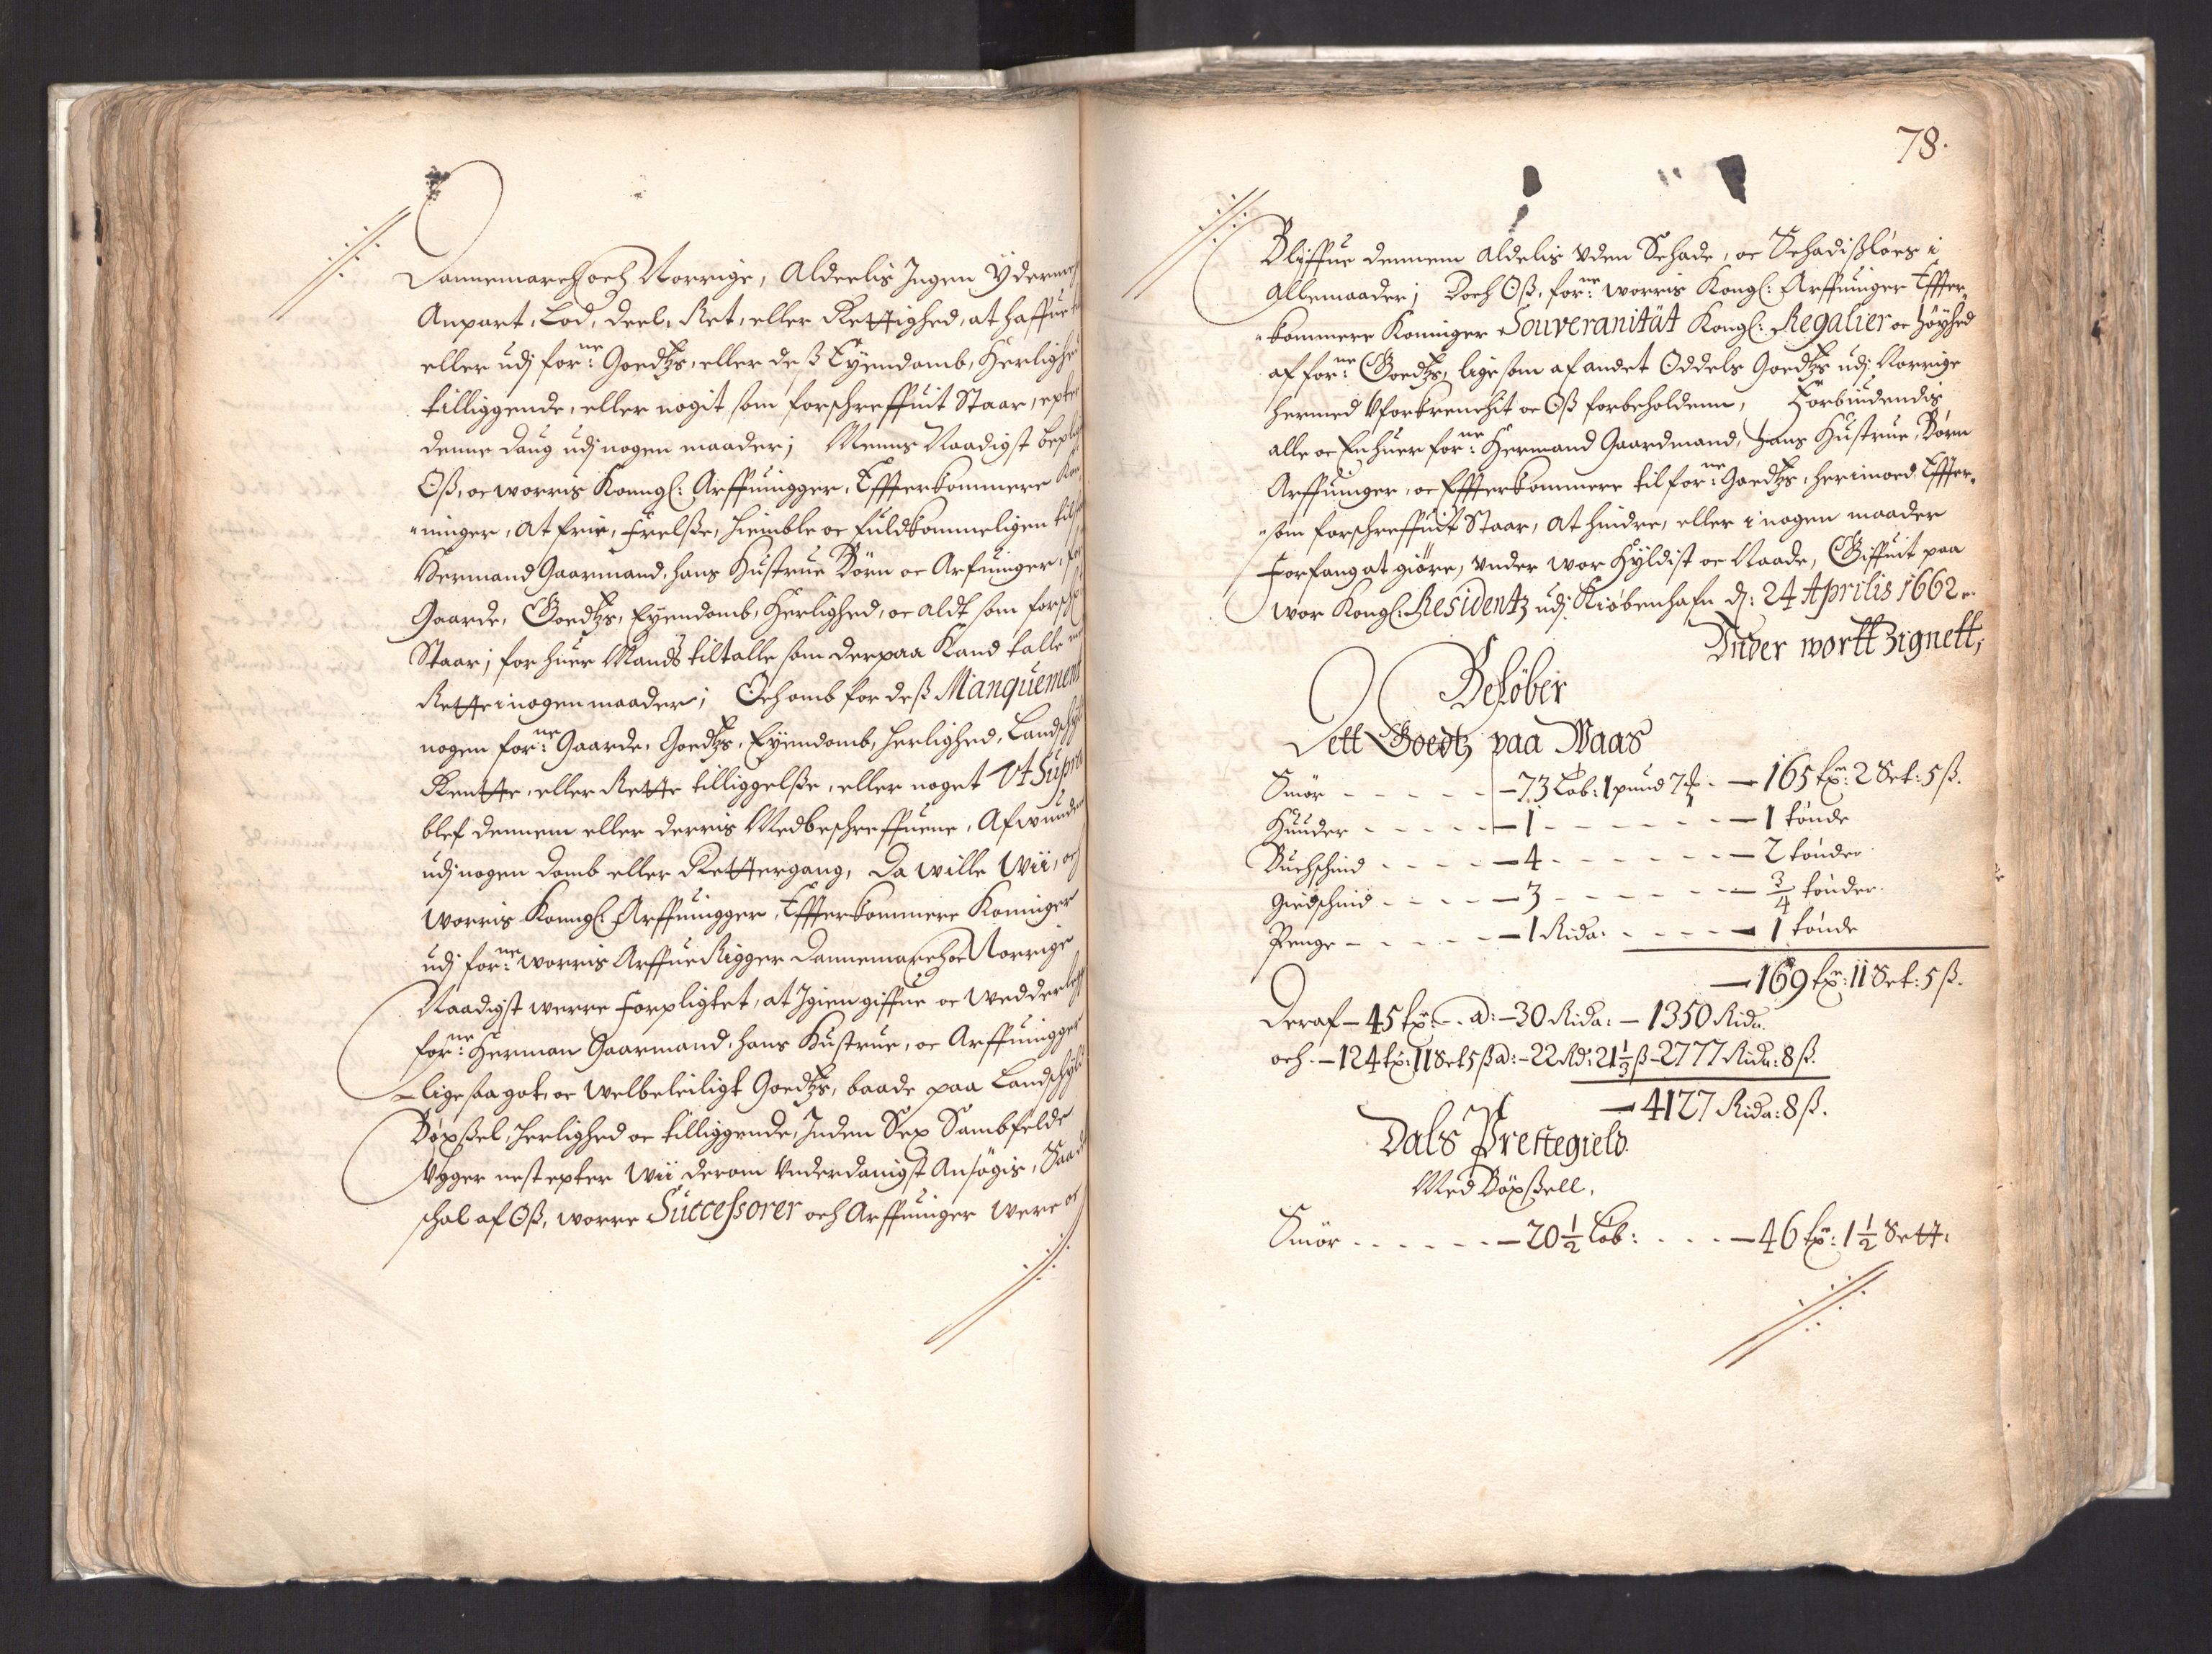 Dannemarch och Norrige, Aldeelis Ingen Ydermere
Anpart, Lod, Deel, Ret, eller Rettighed, at haffue
eller udj for:ne Goedtzs, eller deß Eyendomb, Herlighed
tilliggende, eller nogit som forschreffuit Staar, epter
denne Daug udj nogen maader; Menns Naadigst
Oß, oc worris Konngl: Arffuingger, Effterkommere Kon„
„ninger, at frie, Frelße, hiemble oc fuldkommeligen
Hermand Gaarmand, hans Hustrue Børn oc Arfuinger,
Gaarde, Goedtzs, Eyendomb, Herlighed, oc aldt som
Staar; for huer Mands tiltalle som derpaa Kand talle
Rette i nogen maader; Och omb for deß Manquement
nogen for:ne Gaarde, Goedtzs, Eyendomb, herlighed,
Rentte, eller Rette tilliggelße, eller noget Ut Supra
blef dennem eller derris Medbeschreffuene, Afwunden
udj nogen Domb eller Rettergang, Da wille Wii, oc
worris Konngl: Arffuingger, Effterkommere Koninger
udj for:ne worris Arffue Rigger Dannemarch oc Norrige
Naadigst werre Forpligtet, at Igien giffue oc
for:ne Herman Gaarmand, hans Hustrue, oc Arffuingger
lige saa got, oc welbeleiligt Goedtzs, baade paa Landschyld
Bøxßel, Herlighed oc tilliggende, Inden Sex Sambfelde
Ugger nest epter Wii derom Underdanigst Ansøgis,
schal af Oß, worre Successorer och Arffuinger were oc
78.
Bliffue dennem aldelis uden Schade, oc Schadißløes i
Allemaader; Doch Oß, for:ne worris Kongl: Arffuinger Effter„
„kommere Koninger Souveranität Kongl: Regalier oc høyhed
af for:ne Goedtzs, lige som af andet Oddels Goedtzs udj Norrige
hermed Uforkrenchit oc Oß forbeholdenn, Forbiudendis
alle oc Enhuer for:ne Hermand Gaardmand, hans Hustrue, Børn
Arffuinger, oc Effterkommere til for:ne Goedtzs, herimoed, Effter„
„som forschreffuit Staar, at hindre, eller i nogen maader
Forfang at giøre, under wor Hyldist oc Naade, Giffuit paa
wor Kongl: Residentz udj Kiøbenhafn d: 24 Aprilis 1662.
Under wortt Zignett;
Beløber
Dett Goedtz paa Waas
Smør - - - - - 73 Løb: 1 pund 7 - 165 tr: 2 Set: 5 ß.
Huuder - - - - - 1 - - - - - - 1 tønde
Buchschind - - - - 4 - - - - - 2 tønder
Giedschind - - - - 3 - - - - - 3/4 tønder.
Penge - - - - - 1 Rixda: - - - - 1 tønde
169 tr: 11 Set: 5 ß.
Deraf - 45 tr: - a: - 30 Rixda: - 1350 Rixda.
och - 124 tr: 11 Set 5 ß a: - 22 Rd: 21 1/3 ß - 2777 Rixda: 8 ß.
4127 Rixda: 8 ß.
Dals Prestegield.
Med Bøxßell.
Smør - - - - - - 20 1/2 Løb: - - - 46 tr: 1 1/2 Sett: